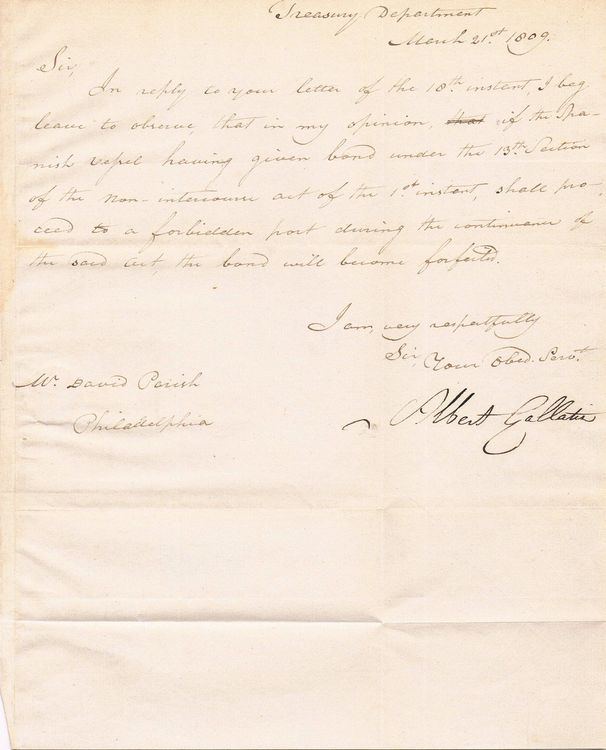 Treasury Department
March 21st 1809.
Sir,
In reply to your letter of the 18th instant, I beg
leave to observe, that in my opinion, that if the Spa-
nish vessel having given bond under the 13th Section
of the non-intercourse act of the 1st instant, shall pro-
ceed to a forbidden port during the continuance of
the said act, the bond will become forfeited.
I am, very respectfully
Sir, Your Obed. Servt.
Mr. David Parish
Philadelphia
Albert Gallatin